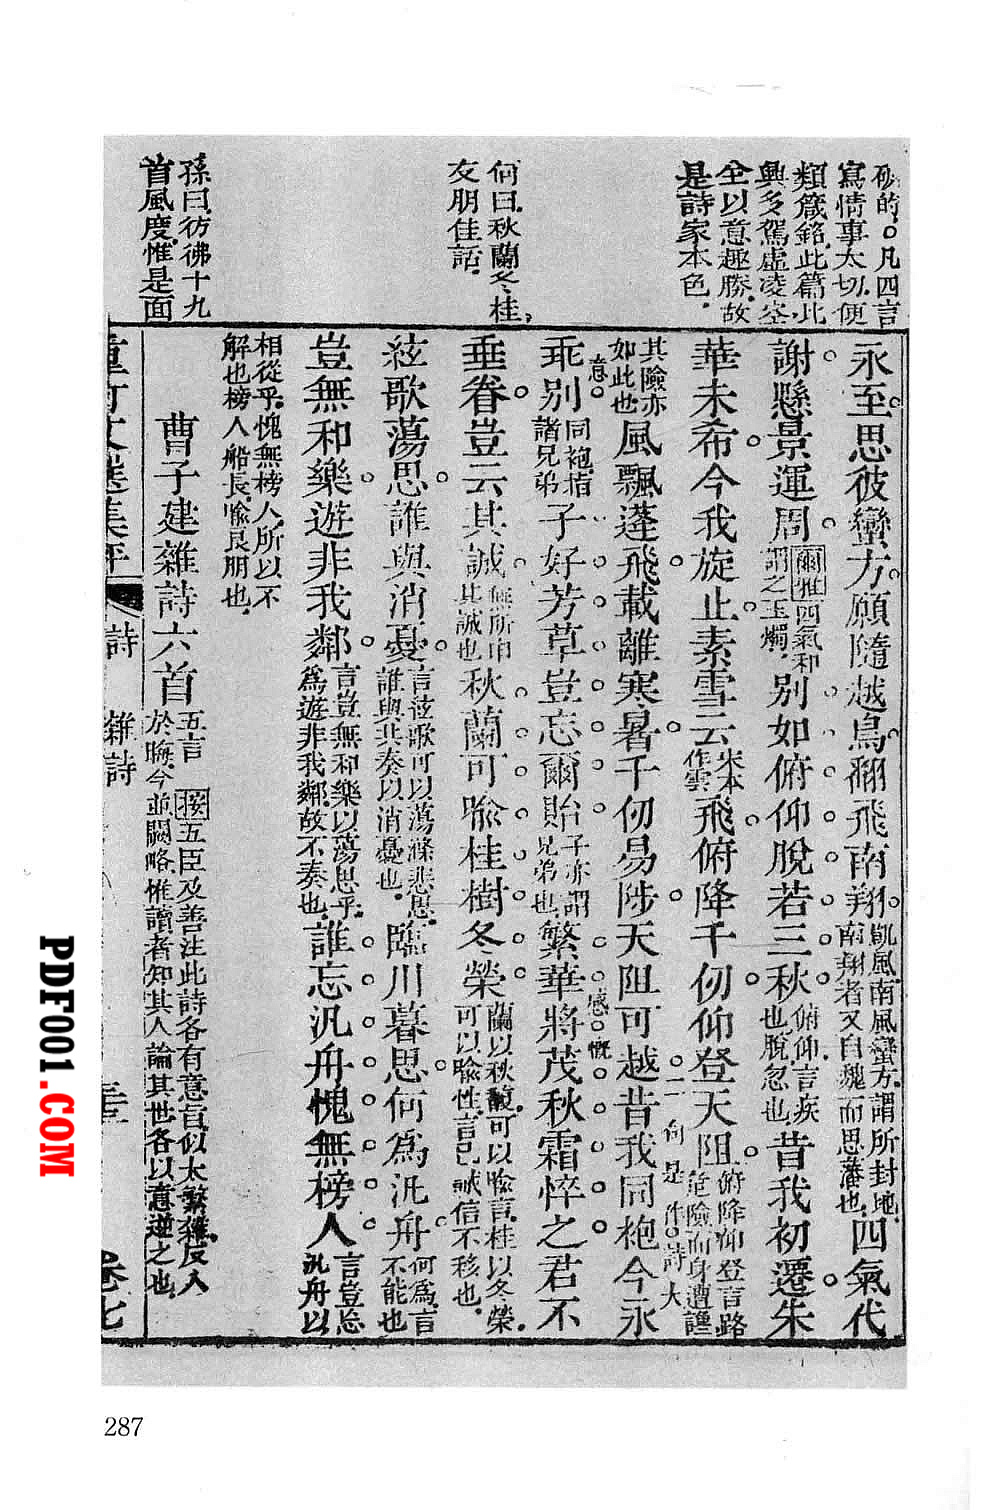 砍的○凡四言
寫情事太切便
類箴銘此篇比
興多駕虛凌空
全以意趣勝故
是詩家本色
何曰秋蘭冬桂
友朋佳話
孫曰彷彿十九
首風度惟是面
永至思彼蠻方願隨越鳥翻飛南翔凱風南風蠻方謂所封地南翔者又自魏而思藩也四氣代
謝懸景運周爾雅四氣和謂之玉燭別如俯仰脫若三秋俯仰言疾也脫忽也昔我初遷朱
華未希今我旋止素雪云宋本作雲飛俯降千仞仰登天阻俯降仰登言路危險而身遭讒
其險亦如此也風飄蓬飛載離寒暑千仞易陟天阻可越昔我同袍今永
二句是作詩大意感慨
乖別同袍指諸兄弟子好芳草豈忘爾貽子亦謂兄弟也繁華將茂秋霜悴之君不
垂眷豈云其誠無所用其誠也秋蘭可喻桂樹冬榮蘭以秋馥可以喻言桂以冬榮可以喻性言己誠信不移也
絃歌蕩思誰與消憂言絃歌可以蕩滌悲思誰與共奏以消憂也臨川暮思何為汎舟何為言不能也
豈無和樂遊非我鄰言豈無和樂以蕩思乎為遊非我鄰故不奏也誰忘汎舟愧無榜人言豈忘汎舟以
相從乎愧無榜人所以不解也榜人船長喻良朋也
曹子建雜詩六首五言 按五臣及善注此詩各有意旨似太繁雜反入於晦今並闕略惟讀者知其人論其世各以意逆之也
重訂文選集評 詩 雜詩 三 卷七
287
PDF001.COM